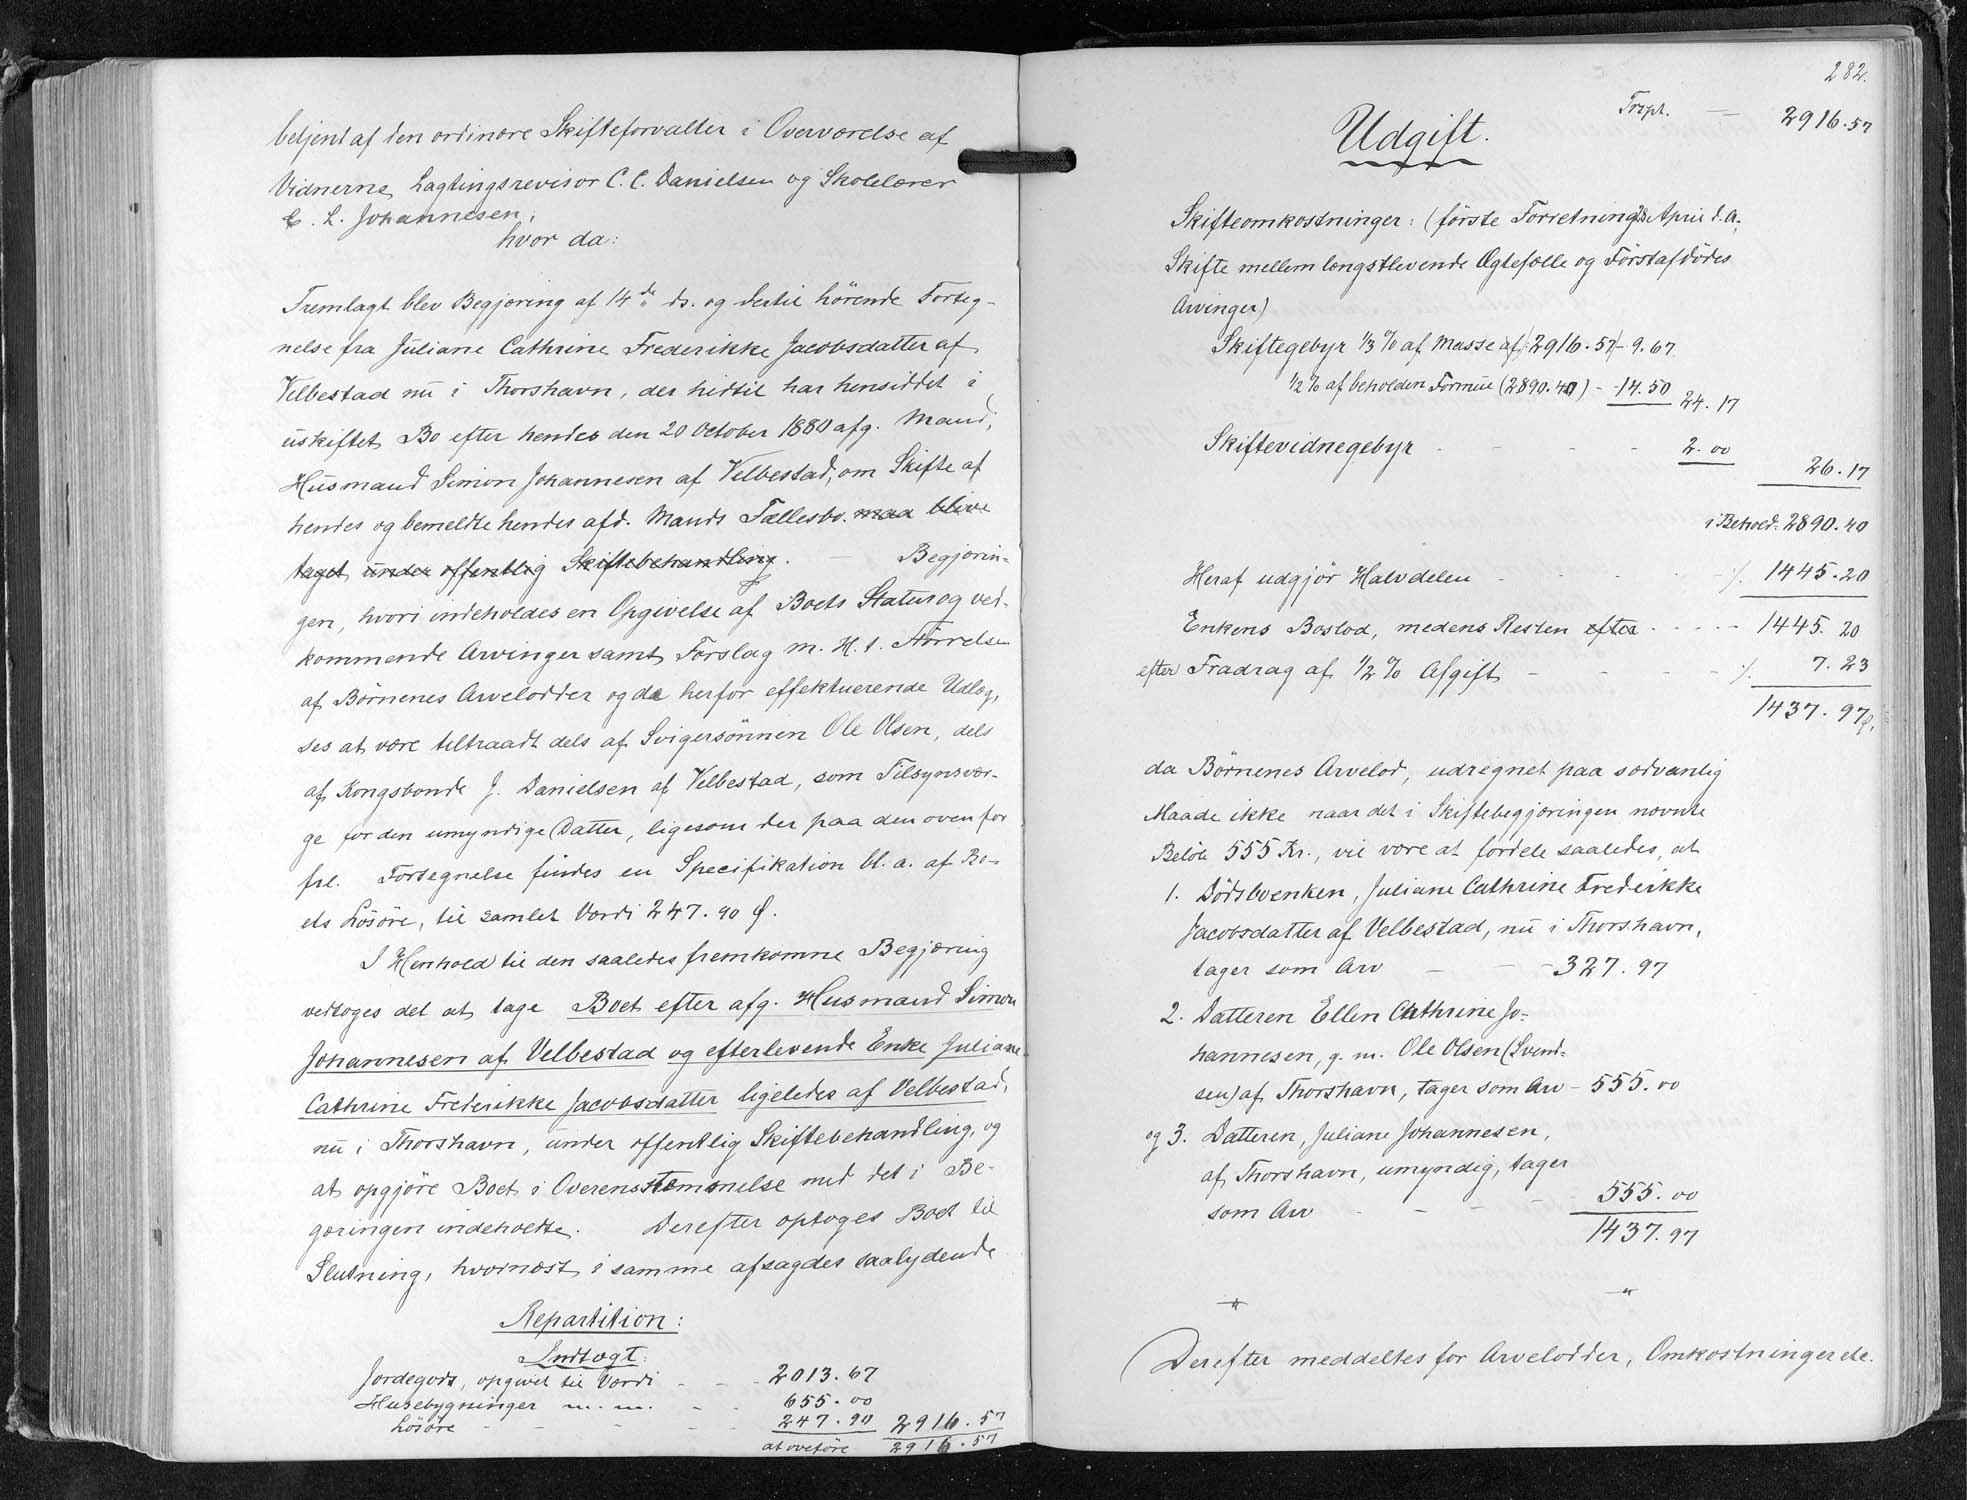 betjent af den ordinære Skifteforvalter i Overværelse af
Vidnerne, Lagtingsrevisor C. C. Danielsen og Skolelærer
E. L. Johannesen;
hvor da:
Fremlagt blev Begjæring af 14de ds. og dertil hörende Forteg-
nelse fra Juliane Cathrine Frederikke Jacobsdatter af
Velbestad nu i Thorshavn, der hidtil har hensiddet i
uskiftet Bo efter hendes den 20 October 1880 afg. Mand,
Husmand Simon Johannesen af Velbestad, om Skifte af
hendes og bemeldte hendes afd. Mands Fællesbo. maa blive
taget under offentlig Skiftebehandling. — Begjærin-
gen, hvori indeholdes en Opgivelse af Boets Status og ved-
kommende Arvinger samt Forslag m. H. t. Størrelsen
af Börnenes Arvelodder og de herfor effektuerende Udlæg,
ses at være tiltraadt dels af Svigersönnen Ole Olsen, dels
af Kongsbonde J. Danielsen af Velbestad, som Tilsynsvær-
ge for den umyndige Datter, ligesom der paa den ovenfor
frl. Fortegnelse findes en Specifikation bl. a. af Bo-
ets Lösöre, til samlet Værdi 247.90 Ø.
I Henhold til den saaledes fremkomne Begjæring
vedtoges det at tage Boet efter afg. Husmand Simon
Johannesen af Velbestad og efterlevende Enke Juliane
Cathrine Frederikke Jacobsdatter ligeledes af Velbestad,
nu i Thorshavn, under offentlig Skiftebehandling, og
at opgjöre Boet i Overensstemmelse med det i Be-
gæringen indeholdte. Derefter optoges Boet til
Slutning, hvornæst i samme afsagdes saalydende
Repartition:
Indtægt:
Jordegods, opgivet til Værdi - - - 2013.67
Husebygninger m. m. - - 655.00
Lösöre - - - - - 247.90 2916.57
at overföre 2916.57
282.
Trspt. — 2916.57
Udgift.
Skifteomkostninger: (förste Forretning 28 April d. a.;
Skifte mellem længstlevende Ægtefælle og Förstafdödes
Arvinger)
Skiftegebyr 1/3 % af Masse af (2916.57) - 9.67
1/2 % af beholden Formue (2890.40) - 14.50 24.17
Skiftevidnegebyr - - - - 2.00
26.17
i Behold: 2890.40
Heraf udgjör Halvdelen - - - - ./. 1445.20
Enkens Boslod, medens Resten efter - - - - 1445.20
efter Fradrag af 1/2 % Afgift - - - - ./. 7.23
1437.97 Ø.
da Börnenes Arvelod, udregnet paa sædvanlig
Maade ikke naar det i Skiftebegjæringen nævnte
Belöb 555 Kr., vil være at fordele saaledes, at
1. Dödsboenken, Juliane Cathrine Frederikke
Jacobsdatter af Velbestad, nu i Thorshavn,
tager som Arv - - - 327.97
2. Datteren Ellen Cathrine Jo-
hannesen, g. m. Ole Olsen (Svend-
sen) af Thorshavn, tager som Arv - 555.00
og 3. Datteren, Juliane Johannesen,
af Thorshavn, umyndig, tager
som Arv - - - - 555.00
1437.97
" "
Derefter meddeltes for Arvelodder, Omkostninger etc.